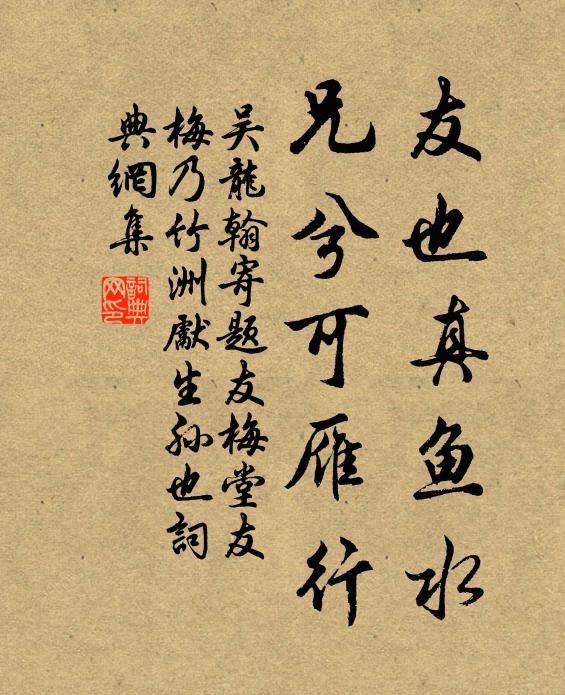 友也真鱼水
兄兮可雁行
吴龍翰寄题友梅堂友
梅乃竹洲獻生孙也詞
典網集
詞典网印